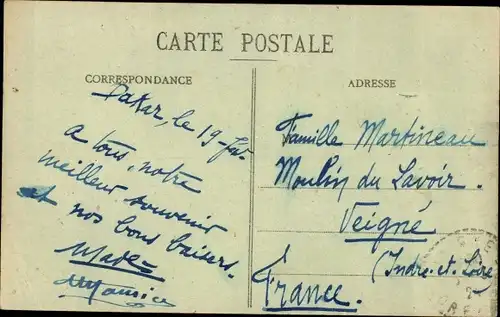 CARTE POSTALE
CORRESPONDANCE
ADRESSE
Dakar, le 19-
A tous, notre
meilleur souvenir
et nos bons baisers.
Maurice
Famille Martineau
Moulin du Lavoir.
Veigné
(Indre-et-Loire
France.